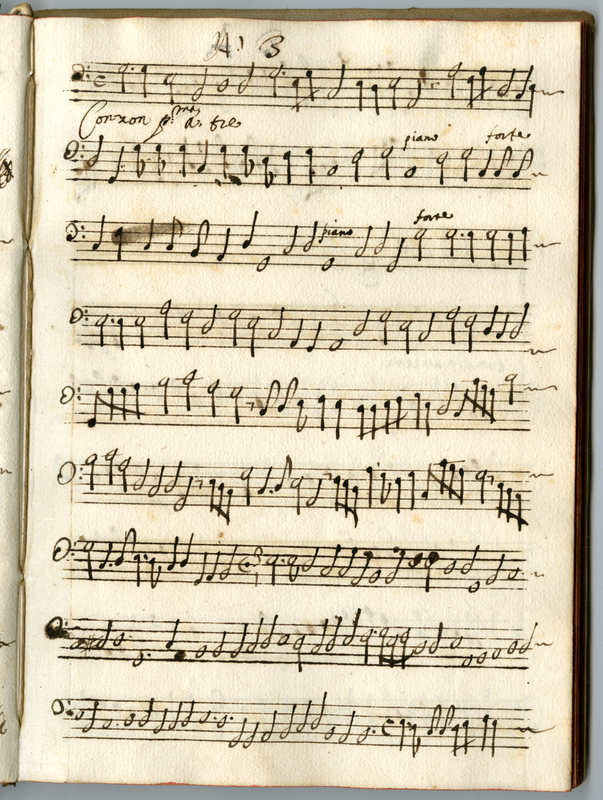 A: 3
Canzon p.ma à tre
piano forte
piano forte